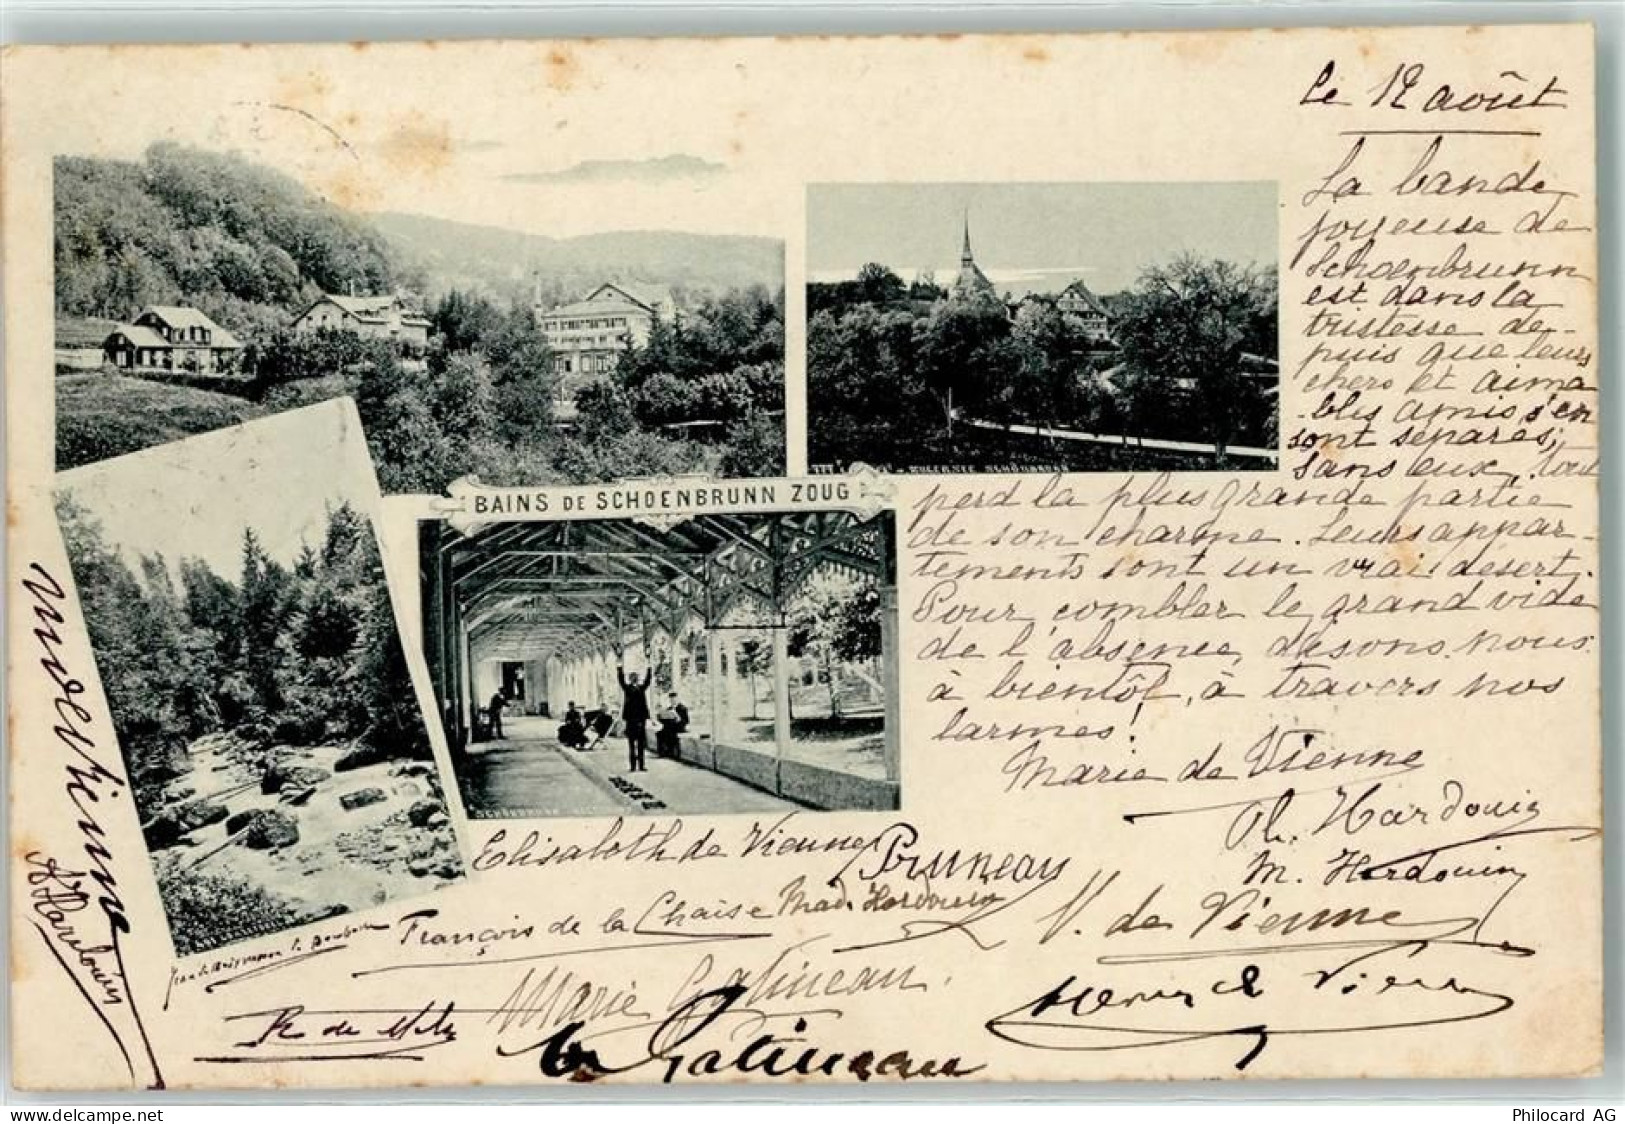 Le 12 août
La bande
joyeuse de
Schoenbrunn
est dans la
tristesse de-
puis que leurs
chers et aima
-bles amis s'en
sont séparés;
sans eux, tout
perd la plus grande partie
de son charme. Leurs appar-
tements sont un vrai désert.
Pour combler le grand vide
de l'absence, disons nous
à bientôt, à travers nos
larmes!
Marie de Vienne
Ph. Hardouin
M. Hardouin
V. de Vienne
Henry de Vienne
BAINS DE SCHOENBRUNN ZOUG
SCHÖNBRUNN
Elisabeth de Vienne
Pruneau
François de la Chaise
Mad. Hardouin
Marie Gatineau.
Gatineau
R de Metz
de Vienne
Hardouin
Philocard AG